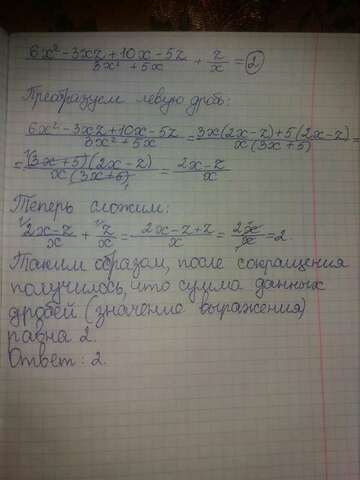 6x² - 3xz + 10x - 5z / 3x² + 5x + z/x = 2
Преобразуем левую дробь:
6x² - 3xz + 10x - 5z / 3x² + 5x = 3x(2x - z) + 5(2x - z) / x(3x + 5) =
= (3x + 5)(2x - z) / x(3x + 5) = 2x - z / x
Теперь сложим:
2x - z / x + z / x = 2x - z + z / x = 2x / x = 2
Таким образом, после сокращения
получилось, что сумма данных
дробей (значение выражения)
равна 2.
Ответ: 2.